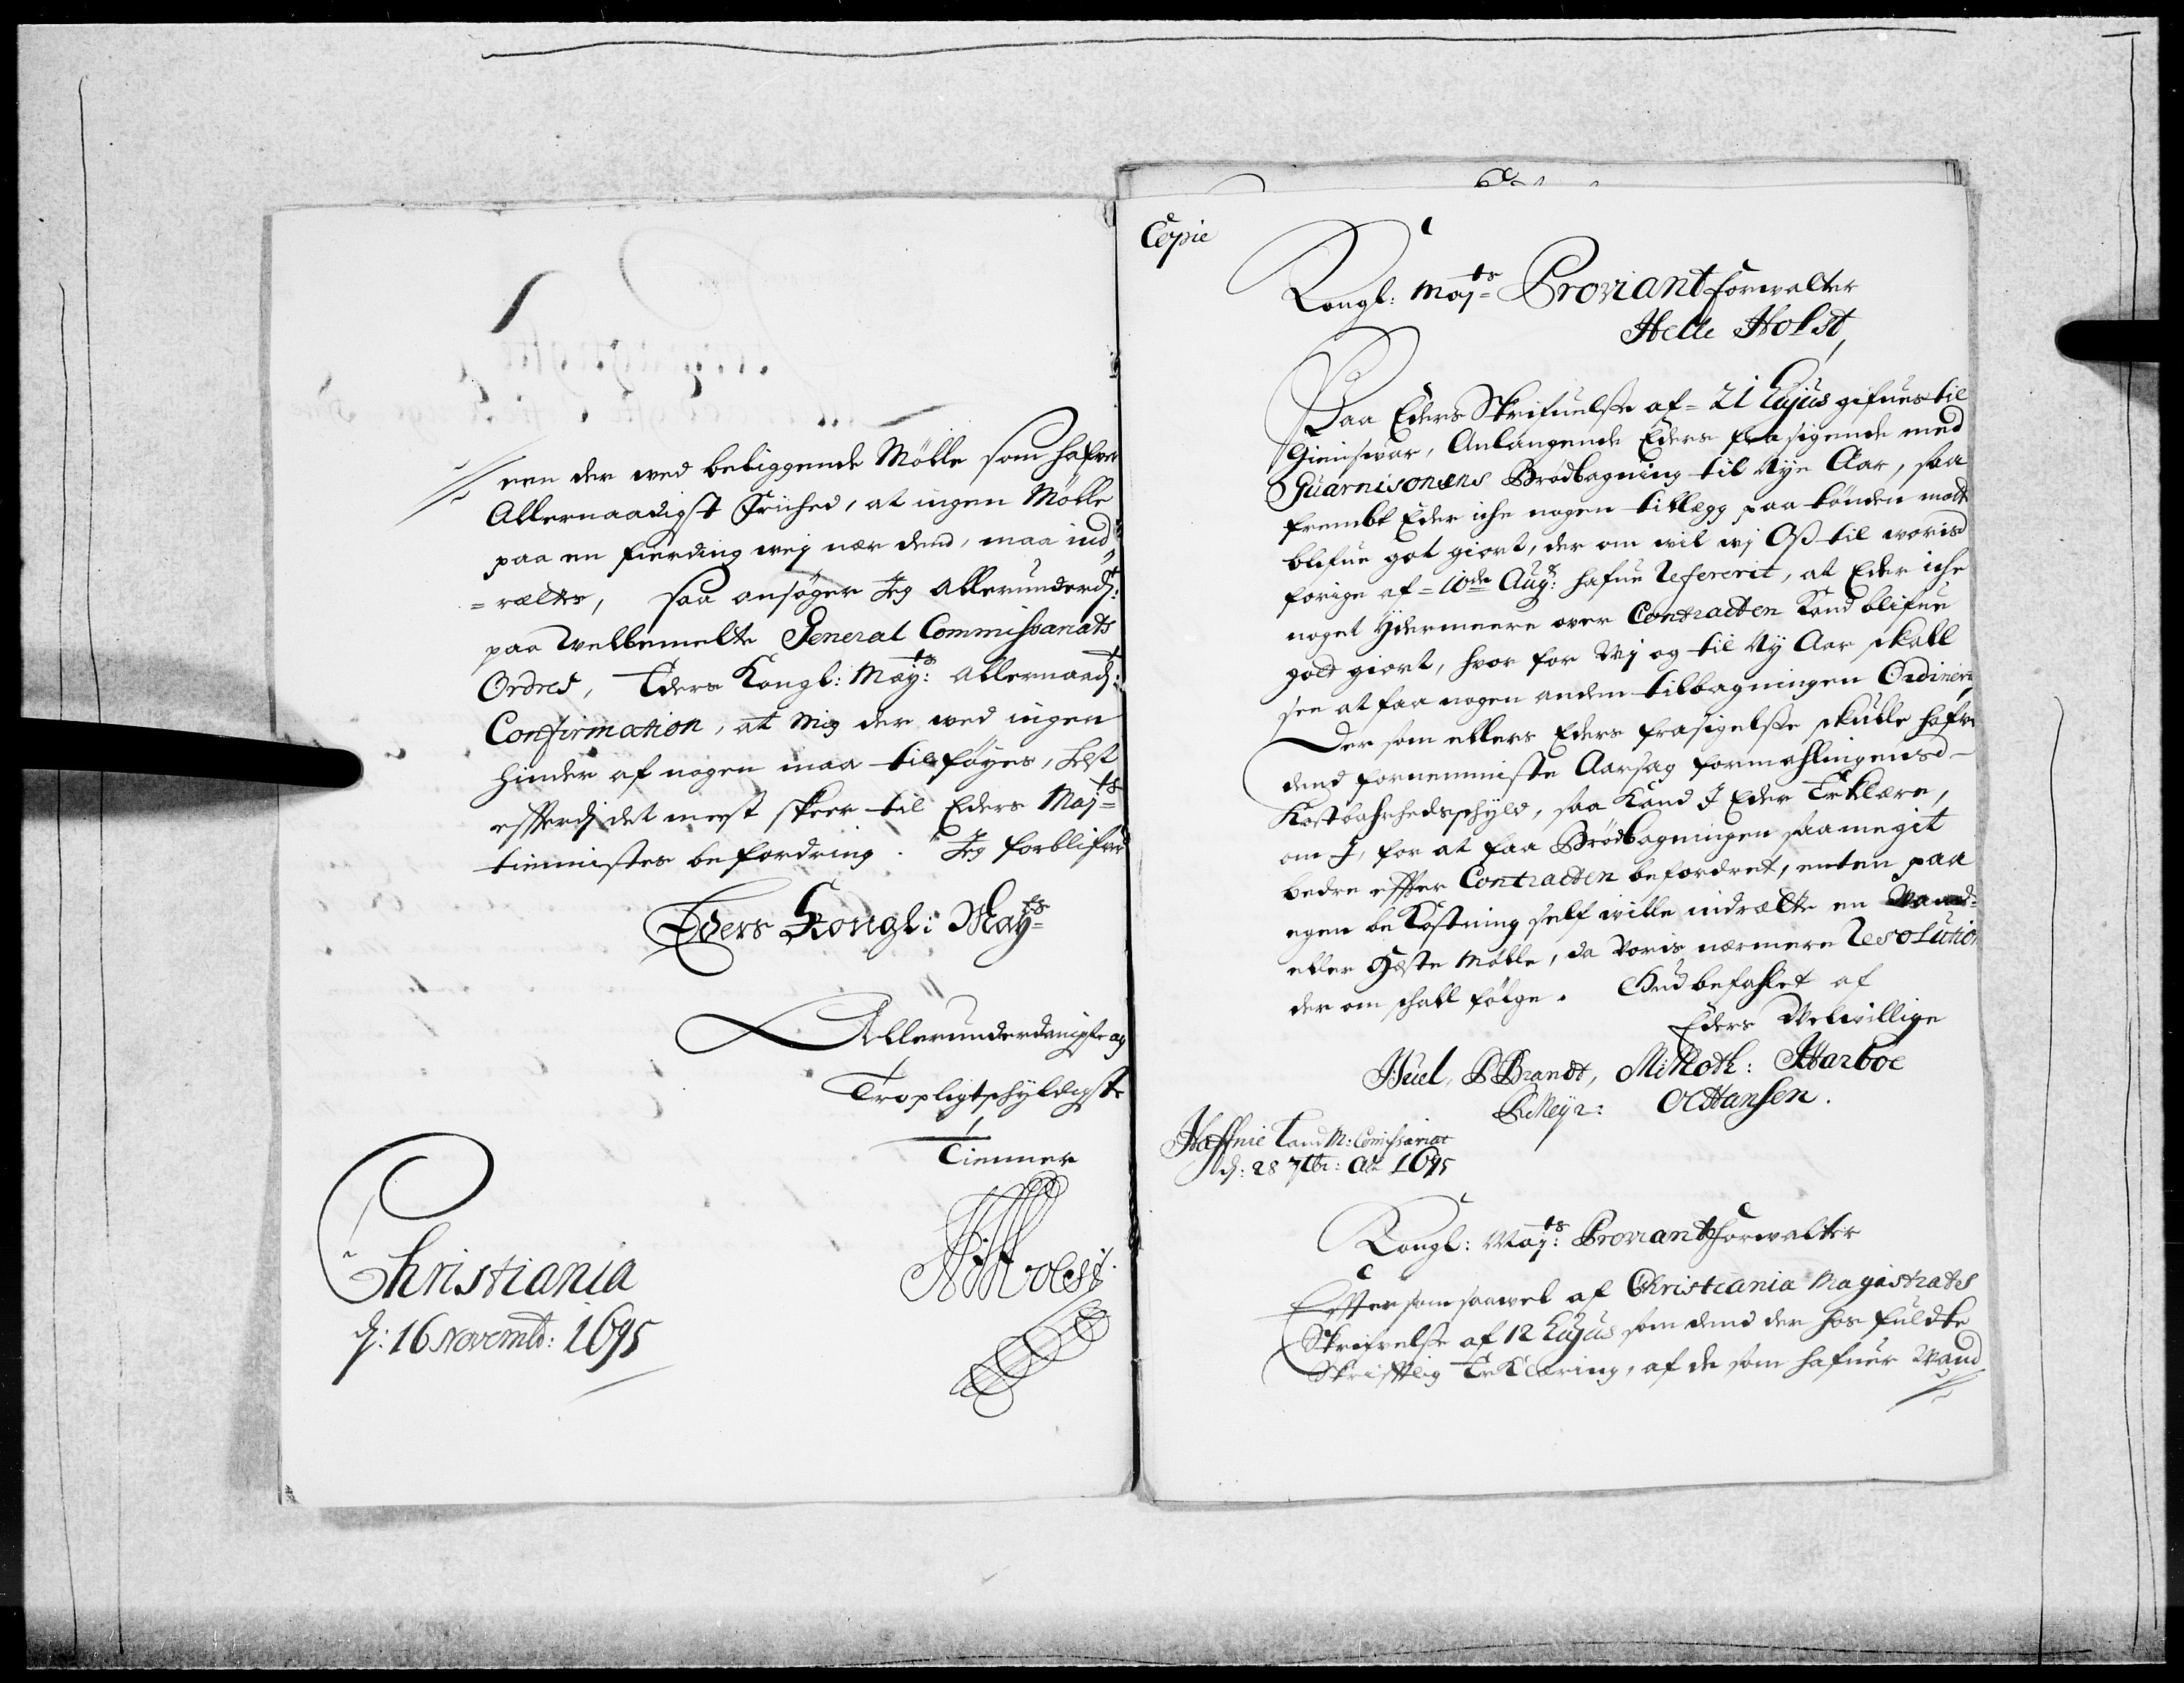 een der ved beliggende Mölle som hafver
Allernaadigst Friihed, at ingen Mölle
paa en fierding vej nær dend, maa ind„
=rættes, saa ansøger Jeg allerunderd:
paa Velbemelte General Commissariats
Ordres, Eders Kongl: May:ts allernaad:
Confirmation, at mig der ved ingen
hinder af nogen maa tilføyes, helst
efterdj det meest skeer til Eders Maj:ts
tiennistes befordring. Jeg forblifver
Eders Kongl: May:ts
Allerunderdanigste og
Tropligtschyldigste
Tienner
Holst
Christiania
d: 16 Novembr: 1695
Copie
Kongl: Maj:ts Proviantforvalter
Helle Holst,
Paa Eders Skrifuelsse af = 21 Hujus gifues til
Giensvar, Anlangende Eders frasigende med
Guarnisonens Brødbagning til Nye Aar, saa
frembt Eder iche nogen tillegg paa tønden motte
blifue got giort, der om vil vj Oss til voris
forige af = 10de Aug: hafue Refererit, at Eder iche
noget Ydermeere over Contracten kand blifue
gott giort, hvor for Vj og til Ny Aar skall
see at faa nogen anden tilbagningen Ordinerit,
Der som ellers Eders frasigelsse skulle hafve
dend fornemmiste Aarsag formahlingens
Kostbahrhedsschyld, saa kand J Eder Erklære,
om J, for at faa Brødbagningen saamegit
bedre effter Contracten befordret, enten paa
egen bekostning self ville indrætte en Vaand=
eller Heste Mølle, da voris nærmere Resolution
der om schall følge. Gud befahlet af
Eders Velvillige
Juel, PBrandt, MMoth: Harboe
PMeyr: OHansen.
Haffnie Land M: Comissariat
d: 28 7br: Ao 1695
Kongl: May:ts Proviantforvalter
Efftersom saavel af Christiania Magistrates
Skrifvelsse af 12 Hujus som dend der hos fuldte
Skrifftlig Erklæring, af de som hafuer Vand